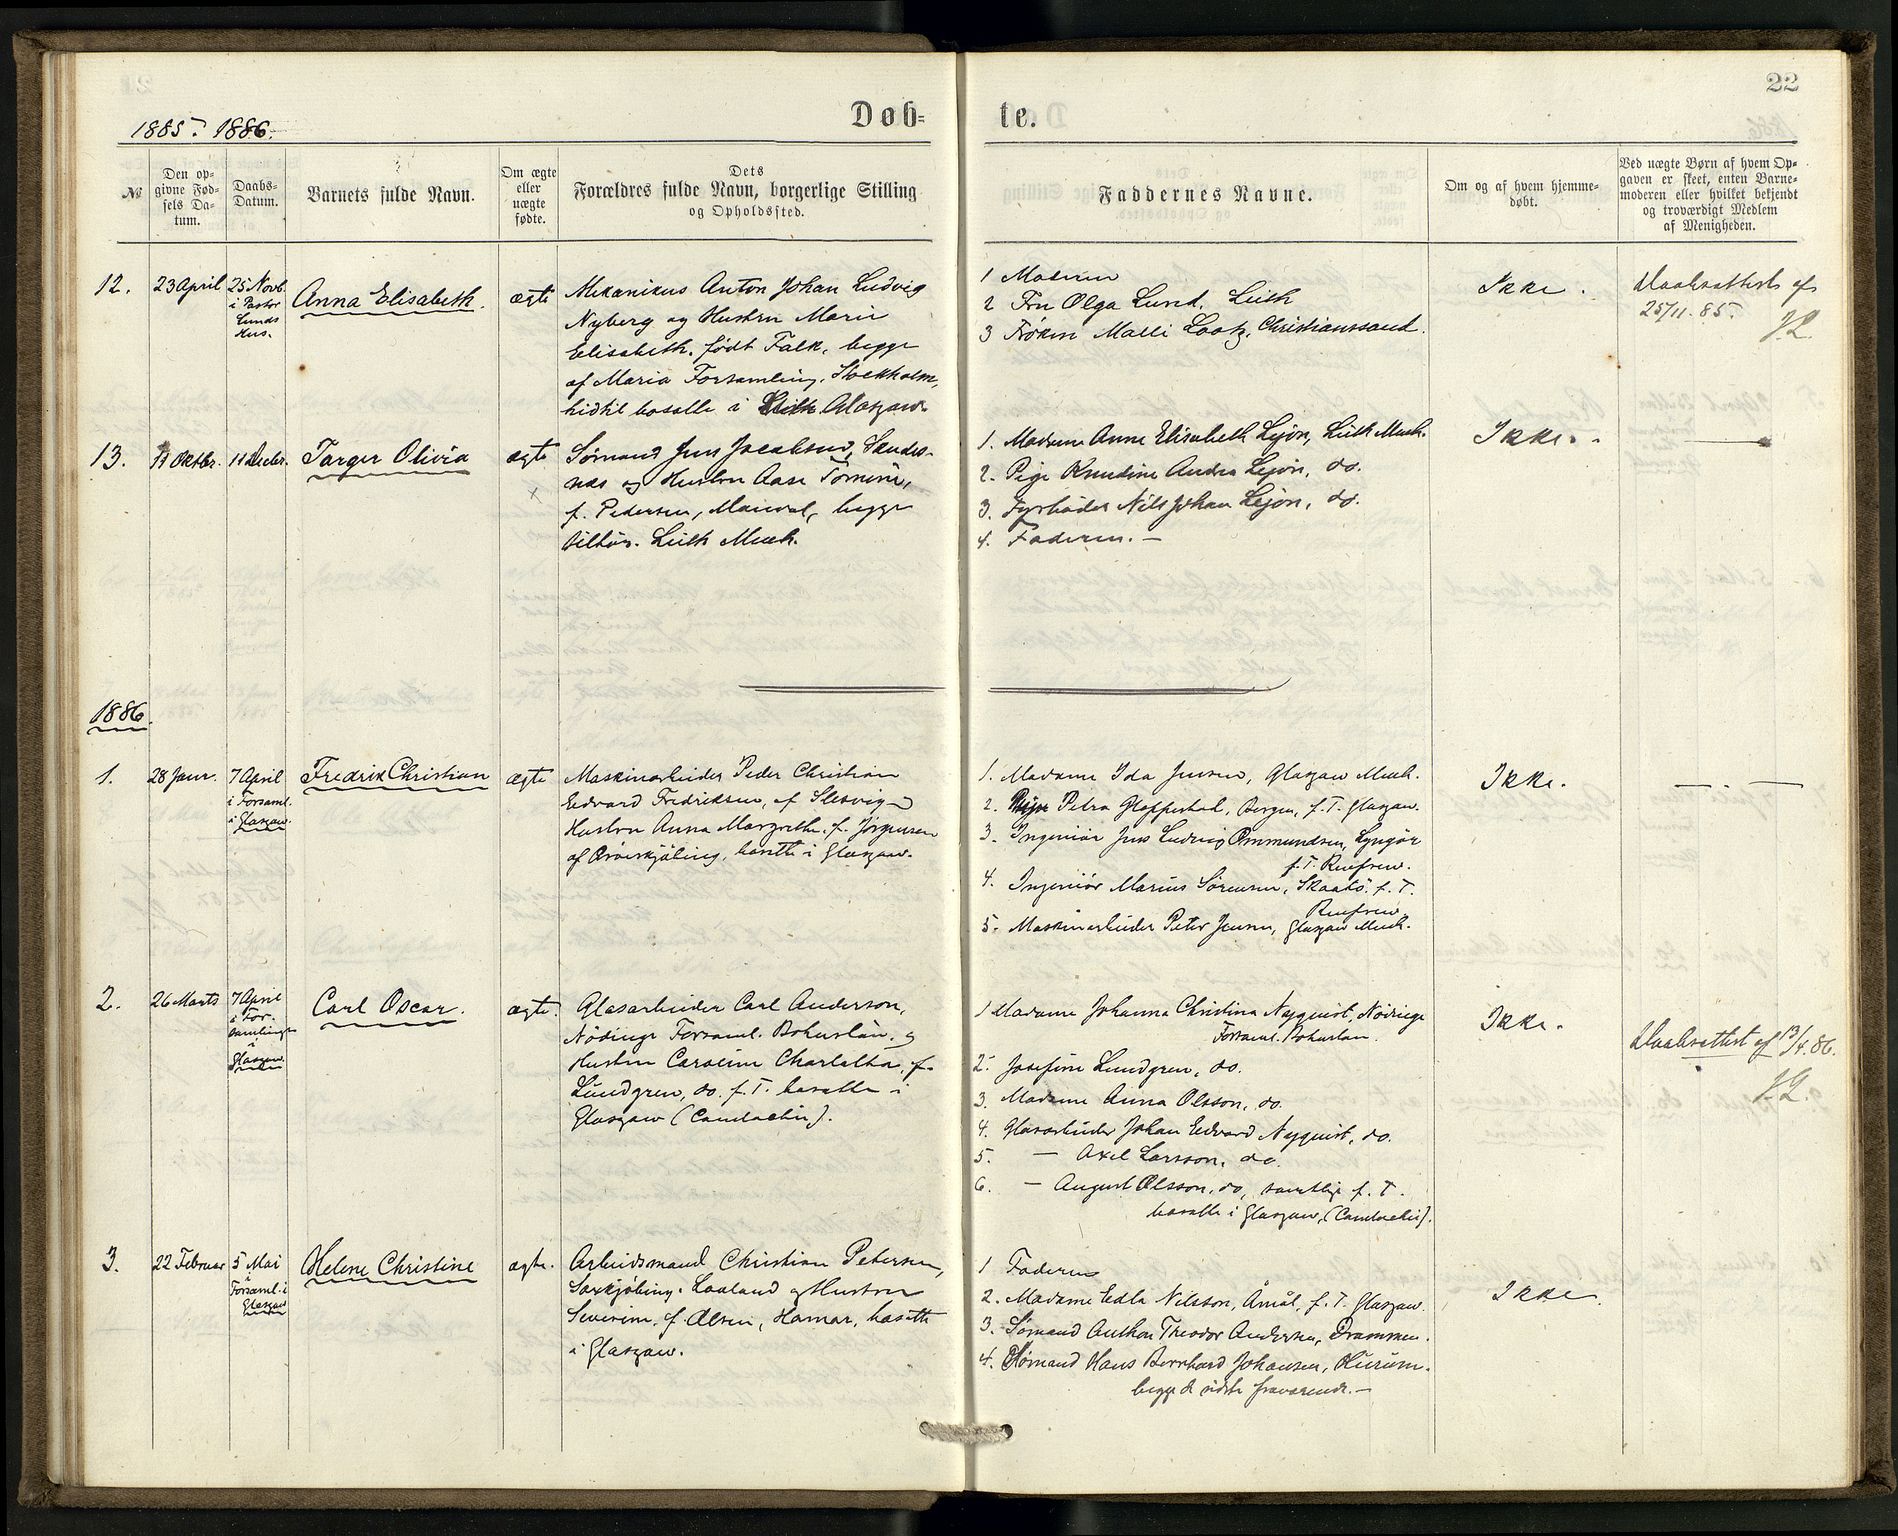 22
1885. 1886.
Døb-
te.
№
Den op-
givne Fød-
sels Da-
tum.
Daabs-
Datum.
Barnets fulde Navn.
Om ægte
eller
uægte
fødte.
Dets
Forældres fulde Navn, borgerlige Stilling
og Opholdssted.
Faddernes Navne.
Om og af hvem hjemme-
døbt.
Ved uægte Børn af hvem Op-
gaven er skeet, enten Barne-
moderen eller hvilket bekjendt
og troværdigt Medlem
af Menigheden.
12.
23 April
25 Novb.
i Pastor
Lunds
Hus.
Anna Elisabeth.
ægte
Mekanikus Anton Johan Ludvig
Nyberg og Hustru Maria
Elisabeth, født Falk, begge
af Maria Forsamling, Stockholm,
hidtil bosatte i Glasgow.
1 Moderen
2 Fru Olga Lund, Leith
3 Frøken Malli Lootz, Christianssand.
Ikke.
Daabsattest af
25/11.85.
J.L.
13.
Oktbr.
11 Decbr.
Torger Olivia
ægte
Sømand Jens Jacobsen, Sandes-
næs og Hustru Aase Tomine,
f. Pedersen, Mandal, begge
tilhør. Leith Meeh.
1. Madame Anne Elisabeth Lejon, Leith Meeh.
2. Pige Knudine Andrea Lejon, do.
3. Fyrbøder Nils Johan Lejon, do.
4. Faderen. —
Ikke.
—
1886.
1.
28 Janr.
7 April
i Forsaml.
i Glasgow.
Fredrik Christian
ægte
Maskinarbeider Peder Christian
Edvard Fredriksen, af Slesvig og
Hustru Anna Margrethe, f. Jørgensen
af Ærøeskjøbing, bosatte i Glasgow.
1. Madame Ida Jensen, Glasgow Meeh.
2. Petra Gloppestad, Bergen, f. T. Glasgow.
3. Ingeniør Jens Ludvig Ommundsen, Lyngør
f. T. Renfrew.
4. Ingeniør Marius Sørensen, Skaatø. f. T.
Renfrew.
5. Maskinarbeider Peter Jensen, Glasgow Meeh.
Ikke.
— . —
2.
26 Marts
7 April
i For-
samlings
i
Glasgow
Carl Oscar.
ægte.
Glasarbeider Carl Anderson,
Nödinge Forsaml. Bohuslän, og
Hustru Caroline Charlotta, f.
Lundgren, do. f. T. bosatte i
Glasgow (Camlachie).
1 Madame Johanna Christina Nyquist, Nödinge
Forsaml. Bohuslän.
2. Josefine Lundgren, do.
3. Madame Anna Olsson, do.
4. Glasarbeider Johan Edvard Nyquist, do.
5. — Axel Larsson, do.
6. — August Olsson, do, samtlige f. T.
bosatte i Glasgow, (Camlachie).
Ikke.
Daabsattest af 13/4.86.
J.L.
3.
22 Februar
5 Mai
i
Forsaml. i
Glasgow
Helene Christine
ægte.
Arbeidsmand Christian Petersen,
Saxkjøbing, Laaland og Hustru
Severine, f. Olsen, Hamar, bosatte
i Glasgow.
1 Faderen
2. Madame Edla Nilsson, Åmål, f. T. Glasgow.
3. Sømand Anthon Theodor Andersen, Drammen.
4. Sømand Hans Bernhard Johansen, Hurum.
begge de sidste fraværende. —
Ikke.